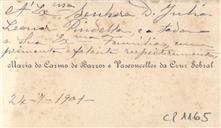 A' Exma Senhora D. Julia
Leonor Pindella e a toda
a sua Exma Familia, cum-
primenta e felicita respeitosamente
Maria do Carmo de Barros e Vasconcellos da Cruz Sobral
24-7-1901
CP 1165